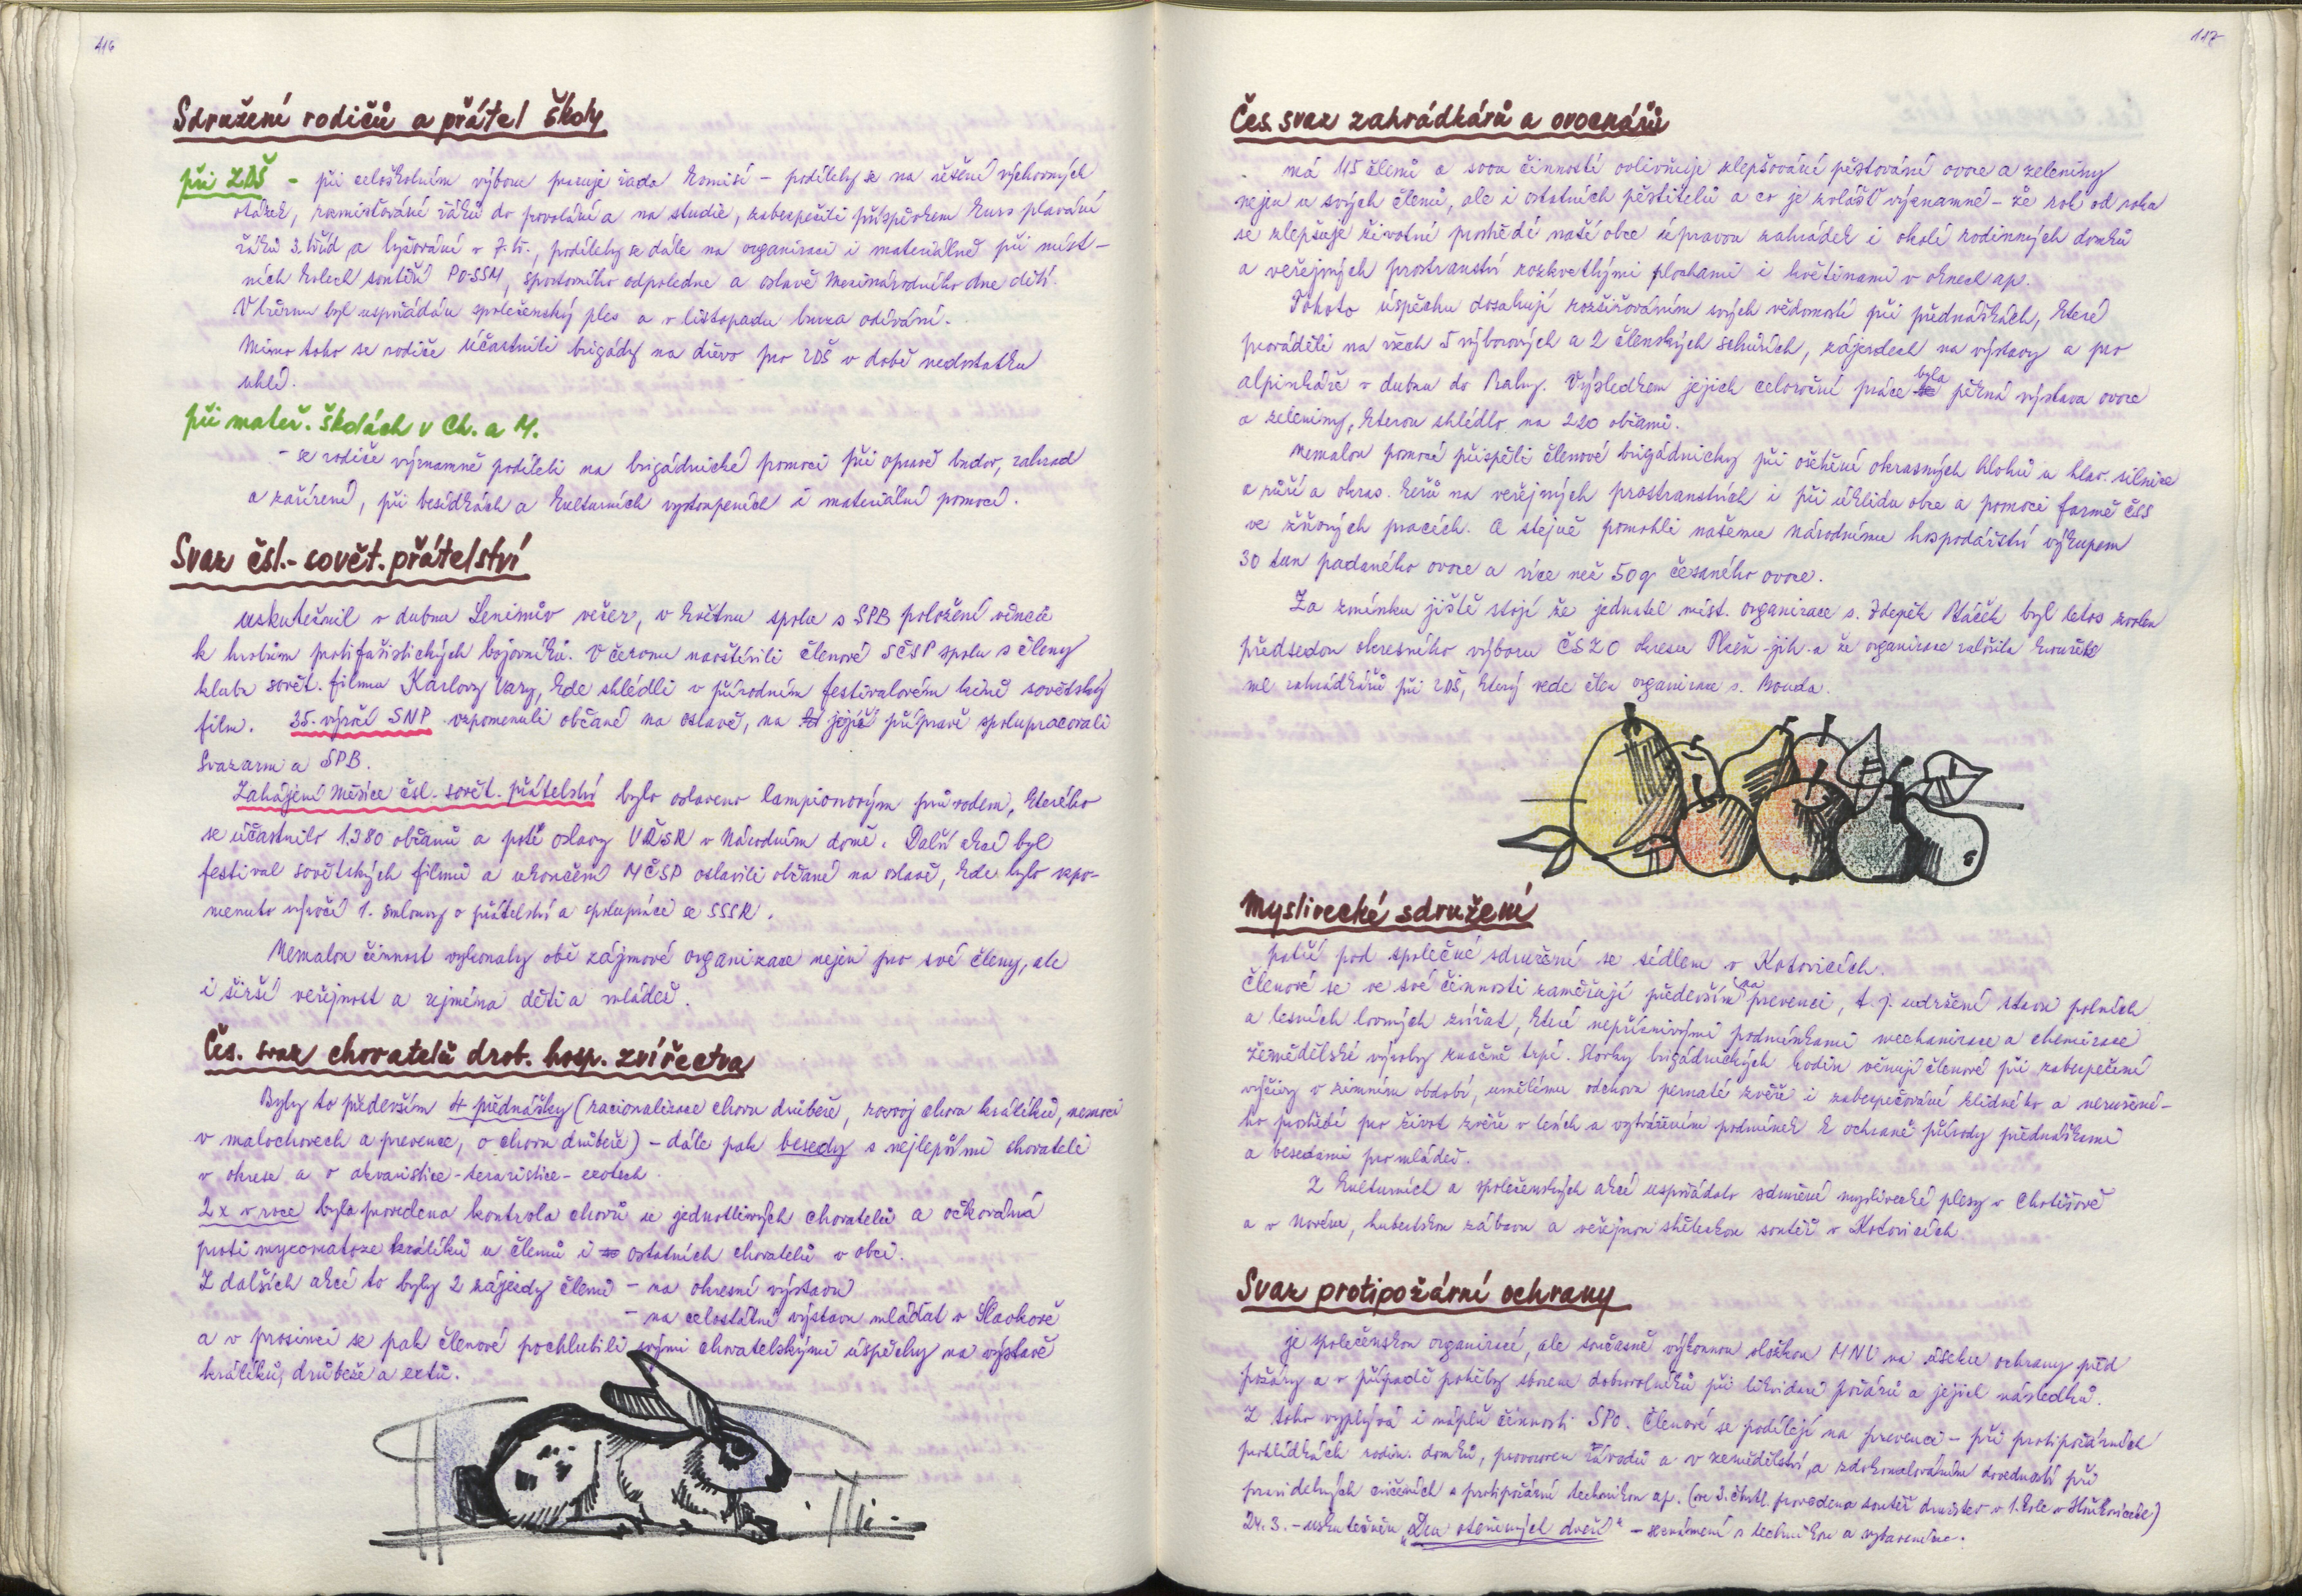 416
Sdružení rodičů a přátel školy
při ZDŠ - při celoškolním výboru pracuje řada komisí - podílely se na řešení výchovných
otázek, rozmisťování žáků do povolání a na studie, zabezpečili příspěvkem kurs plavání
žáků 3. tříd a lyžování v 7. tř., podílely se dále na organizaci i materiálně při míst-
ních kolech soutěží PO-SSM, sportovního odpoledne a oslavě Mezinárodního dne dětí.
V březnu byl uspořádán společenský ples a v listopadu burza odívání.
Mimo toho se rodiče účastnili brigády na dřevo pro ZDŠ v době nedostatku
uhlí.
při mateř. školách v Ch. a M.
- se rodiče významně podíleli na brigádnické pomoci při opravě budov, zahrad
a zařízení, při besídkách a kulturních vystoupeních i materiální pomocí.
Svaz čsl.-sovět. přátelství
uskutečnil v dubnu Leninův večer, v květnu spolu s SPB položení věnců
k hrobům protifašistických bojovníků. V červnu navštívili členové SČSP spolu s členy
klubu sovět. filmu Karlovy Vary, kde shlédli v přírodním festivalovém kině sovětský
film. 35. výročí SNP vzpomenuli občané na oslavě, na jejíž přípravě spolupracovali
Svazarm a SPB.
Zahájení Měsíce čsl.-sovět. přátelství bylo oslaveno lampionovým průvodem, kterého
se účastnilo 1380 občanů a poté oslavy VŘSR v Národním domě. Další akcí byl
festival sovětských filmů a ukončení MČSP oslavili občané na oslavě, kde bylo vzpo-
menuto výročí 1. smlouvy o přátelství a spolupráci se SSSR.
Nemalou činnost vykonaly obě zájmové organizace nejen pro své členy, ale
i širší veřejnost a zejména děti a mládež.
Čes. svaz chovatelů drob. hosp. zvířectva
Byly to především 4 přednášky (racionalizace chovu drůbeže, rozvoj chovu králíků, nemoci
v malochovech a prevence, o chovu drůbeže) - dále pak besedy s nejlepšími chovateli
v okrese a o akvaristice-teraristice-exotech.
2x v roce byla provedena kontrola chovů u jednotlivých chovatelů a očkování
proti myxomatoze králíků u členů i ostatních chovatelů v obci.
Z dalších akcí to byly 2 zájezdy členů - na okresní výstavu
- na celostátní výstavu mláďat v Slavkově
a v prosinci se pak členové pochlubili svými chovatelskými úspěchy na výstavě
králíků, drůbeže a exotů.
117
Čes. svaz zahrádkářů a ovocnářů
má 115 členů a svou činností ovlivňuje zlepšování pěstování ovoce a zeleniny
nejen u svých členů, ale i ostatních pěstitelů a co je zvlášť významné - že rok od roku
se zlepšuje životní prostředí naší obce úpravou zahrádek i okolí rodinných domků
a veřejných prostranství rozkvetlými plochami i květinami v oknech ap.
Tohoto úspěchu dosahují rozšiřováním svých vědomostí při přednáškách, které
prováděli na všech 5 výborových a 2 členských schůzích, zájezdech na výstavy a pro
alpinkáře v dubnu do Prahy. Výsledkem jejich celoroční práce byla pěkná výstava ovoce
a zeleniny, kterou shlédlo na 220 občanů.
Nemalou pomocí přispěli členové brigádnicky při ošetření okrasných hlohů u hlav. silnice
a růží a okras. keřů na veřejných prostranstvích i při úklidu obce a pomoci farmě ČSS
ve žňových pracích. A stejně pomohli našemu národnímu hospodářství výkupem
30 tun padaného ovoce a více než 50 q česaného ovoce.
Za zmínku jistě stojí že jednatel míst. organizace s. Zdeněk Ptáček byl letos zvolen
předsedou okresního výboru ČSZO okresu Plzeň-jih a že organizace založila kroužek
ml. zahrádkářů při ZDŠ, který vede člen organizace s. Bouda.
Myslivecké sdružení
patří pod společné sdružení se sídlem v Kotovicích.
Členové se ve své činnosti zaměřují především na prevenci, t.j. udržení stavu polních
a lesních lovných zvířat, které nepříznivými podmínkami mechanizace a chemizace
zemědělské výroby značně trpí. Stovky brigádnických hodin věnují členové při zabezpečení
výživy v zimním období, umělému odchovu pernaté zvěře i zabezpečování klidného a nerušené-
ho prostředí pro život zvěře v lesích a vytvářením podmínek k ochraně přírody přednáškami
a besedami pro mládež.
Z kulturních a společenských akcí uspořádalo sdružení myslivecké plesy v Chotěšově
a v Novém, hubertskou zábavu a veřejnou střeleckou soutěž v Kotovicích.
Svaz protipožární ochrany
je společenskou organizací, ale současně výkonnou složkou MNV na úseku ochrany před
požáry a v případě potřeby sborem dobrovolníků při likvidaci požárů a jejich následků.
Z toho vyplývá i náplň činnosti SPO. Členové se podílejí na prevenci - při protipožárních
prohlídkách rodin. domků, provozoven závodů a v zemědělství, a zdokonalováním dovedností při
pravidelných cvičeních s protipožární technikou ap. (ve 3. čtvrtl. provedena soutěž družstev v 1. kole v)
24. 3. - uskutečněn „Den otevřených dveří" - seznámení s technikou a vybavením.